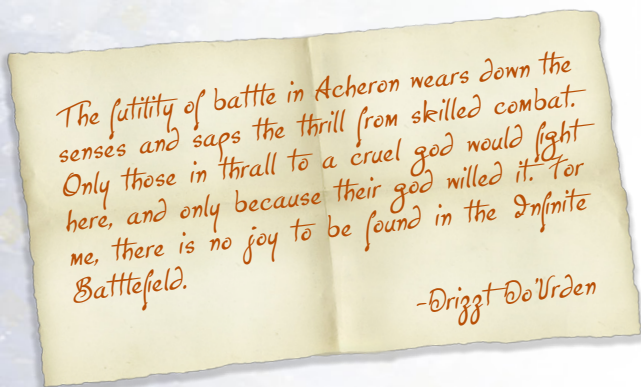 The futility of battle in Acheron wears down the
senses and saps the thrill from skilled combat.
Only those in thrall to a cruel god would fight
here, and only because their god willed it. For
me, there is no joy to be found in the Infinite
Battlefield.
-Drizzt Do'Urden